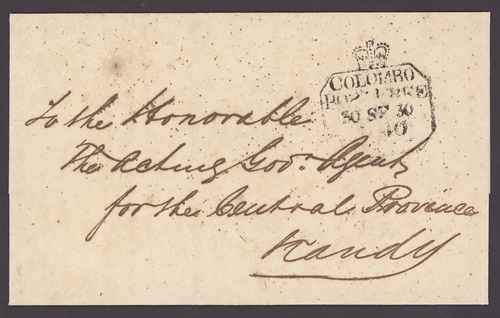 COLOMBO
POST FREE
30 SP 30
40
To the Honorable
The Acting Govr. Agent
for the Central Province
Kandy